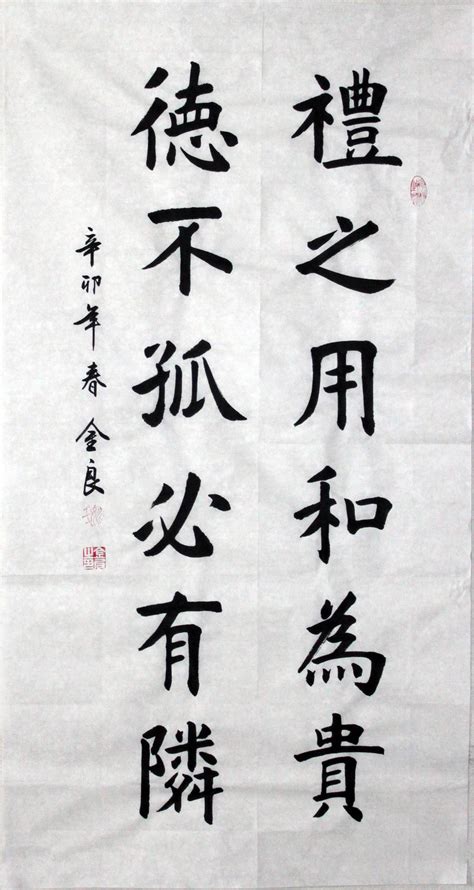 禮之用和為貴
德不孤必有隣
辛卯年春金良